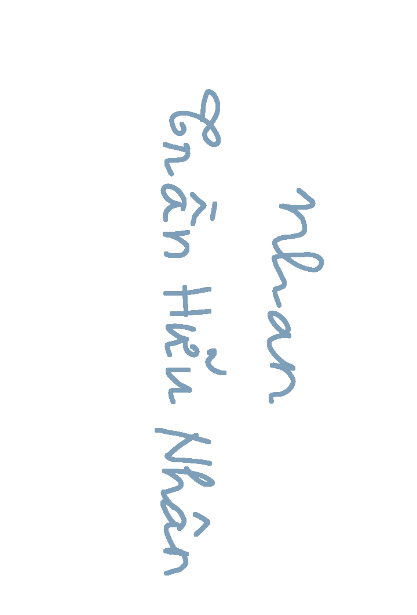 Nhan
Trần Hữu Nhân